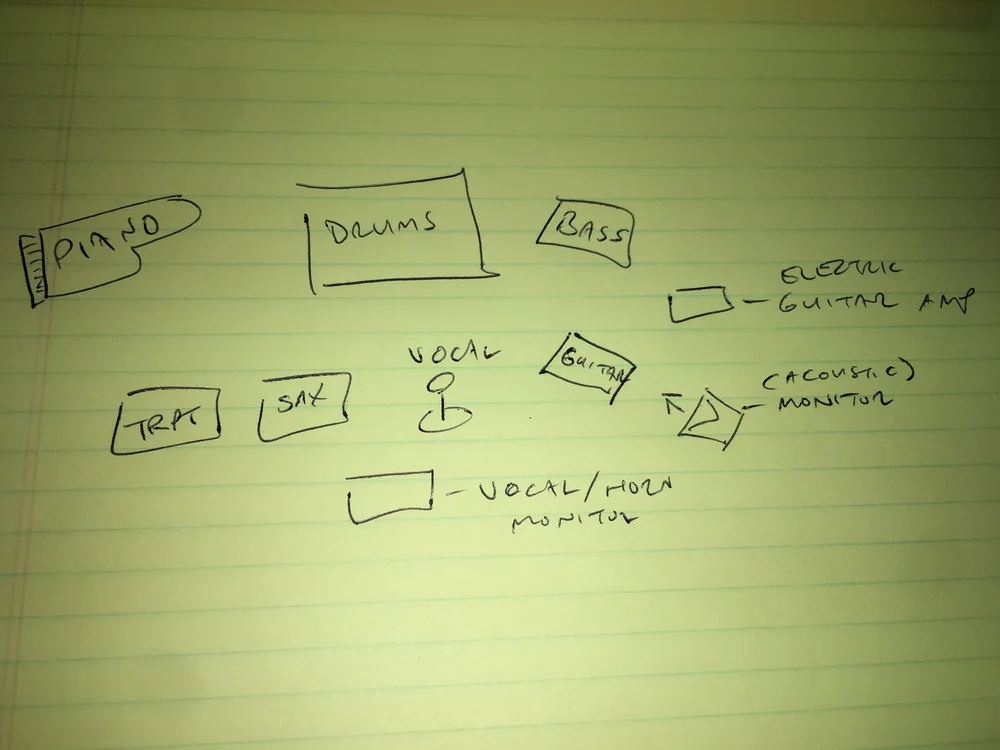 PIANO
DRUMS
BASS
ELECTRIC
GUITAR AMP
VOCAL
GUITAR
(ACOUSTIC)
MONITOR
TRPT
SAX
VOCAL/HORN
MONITOR